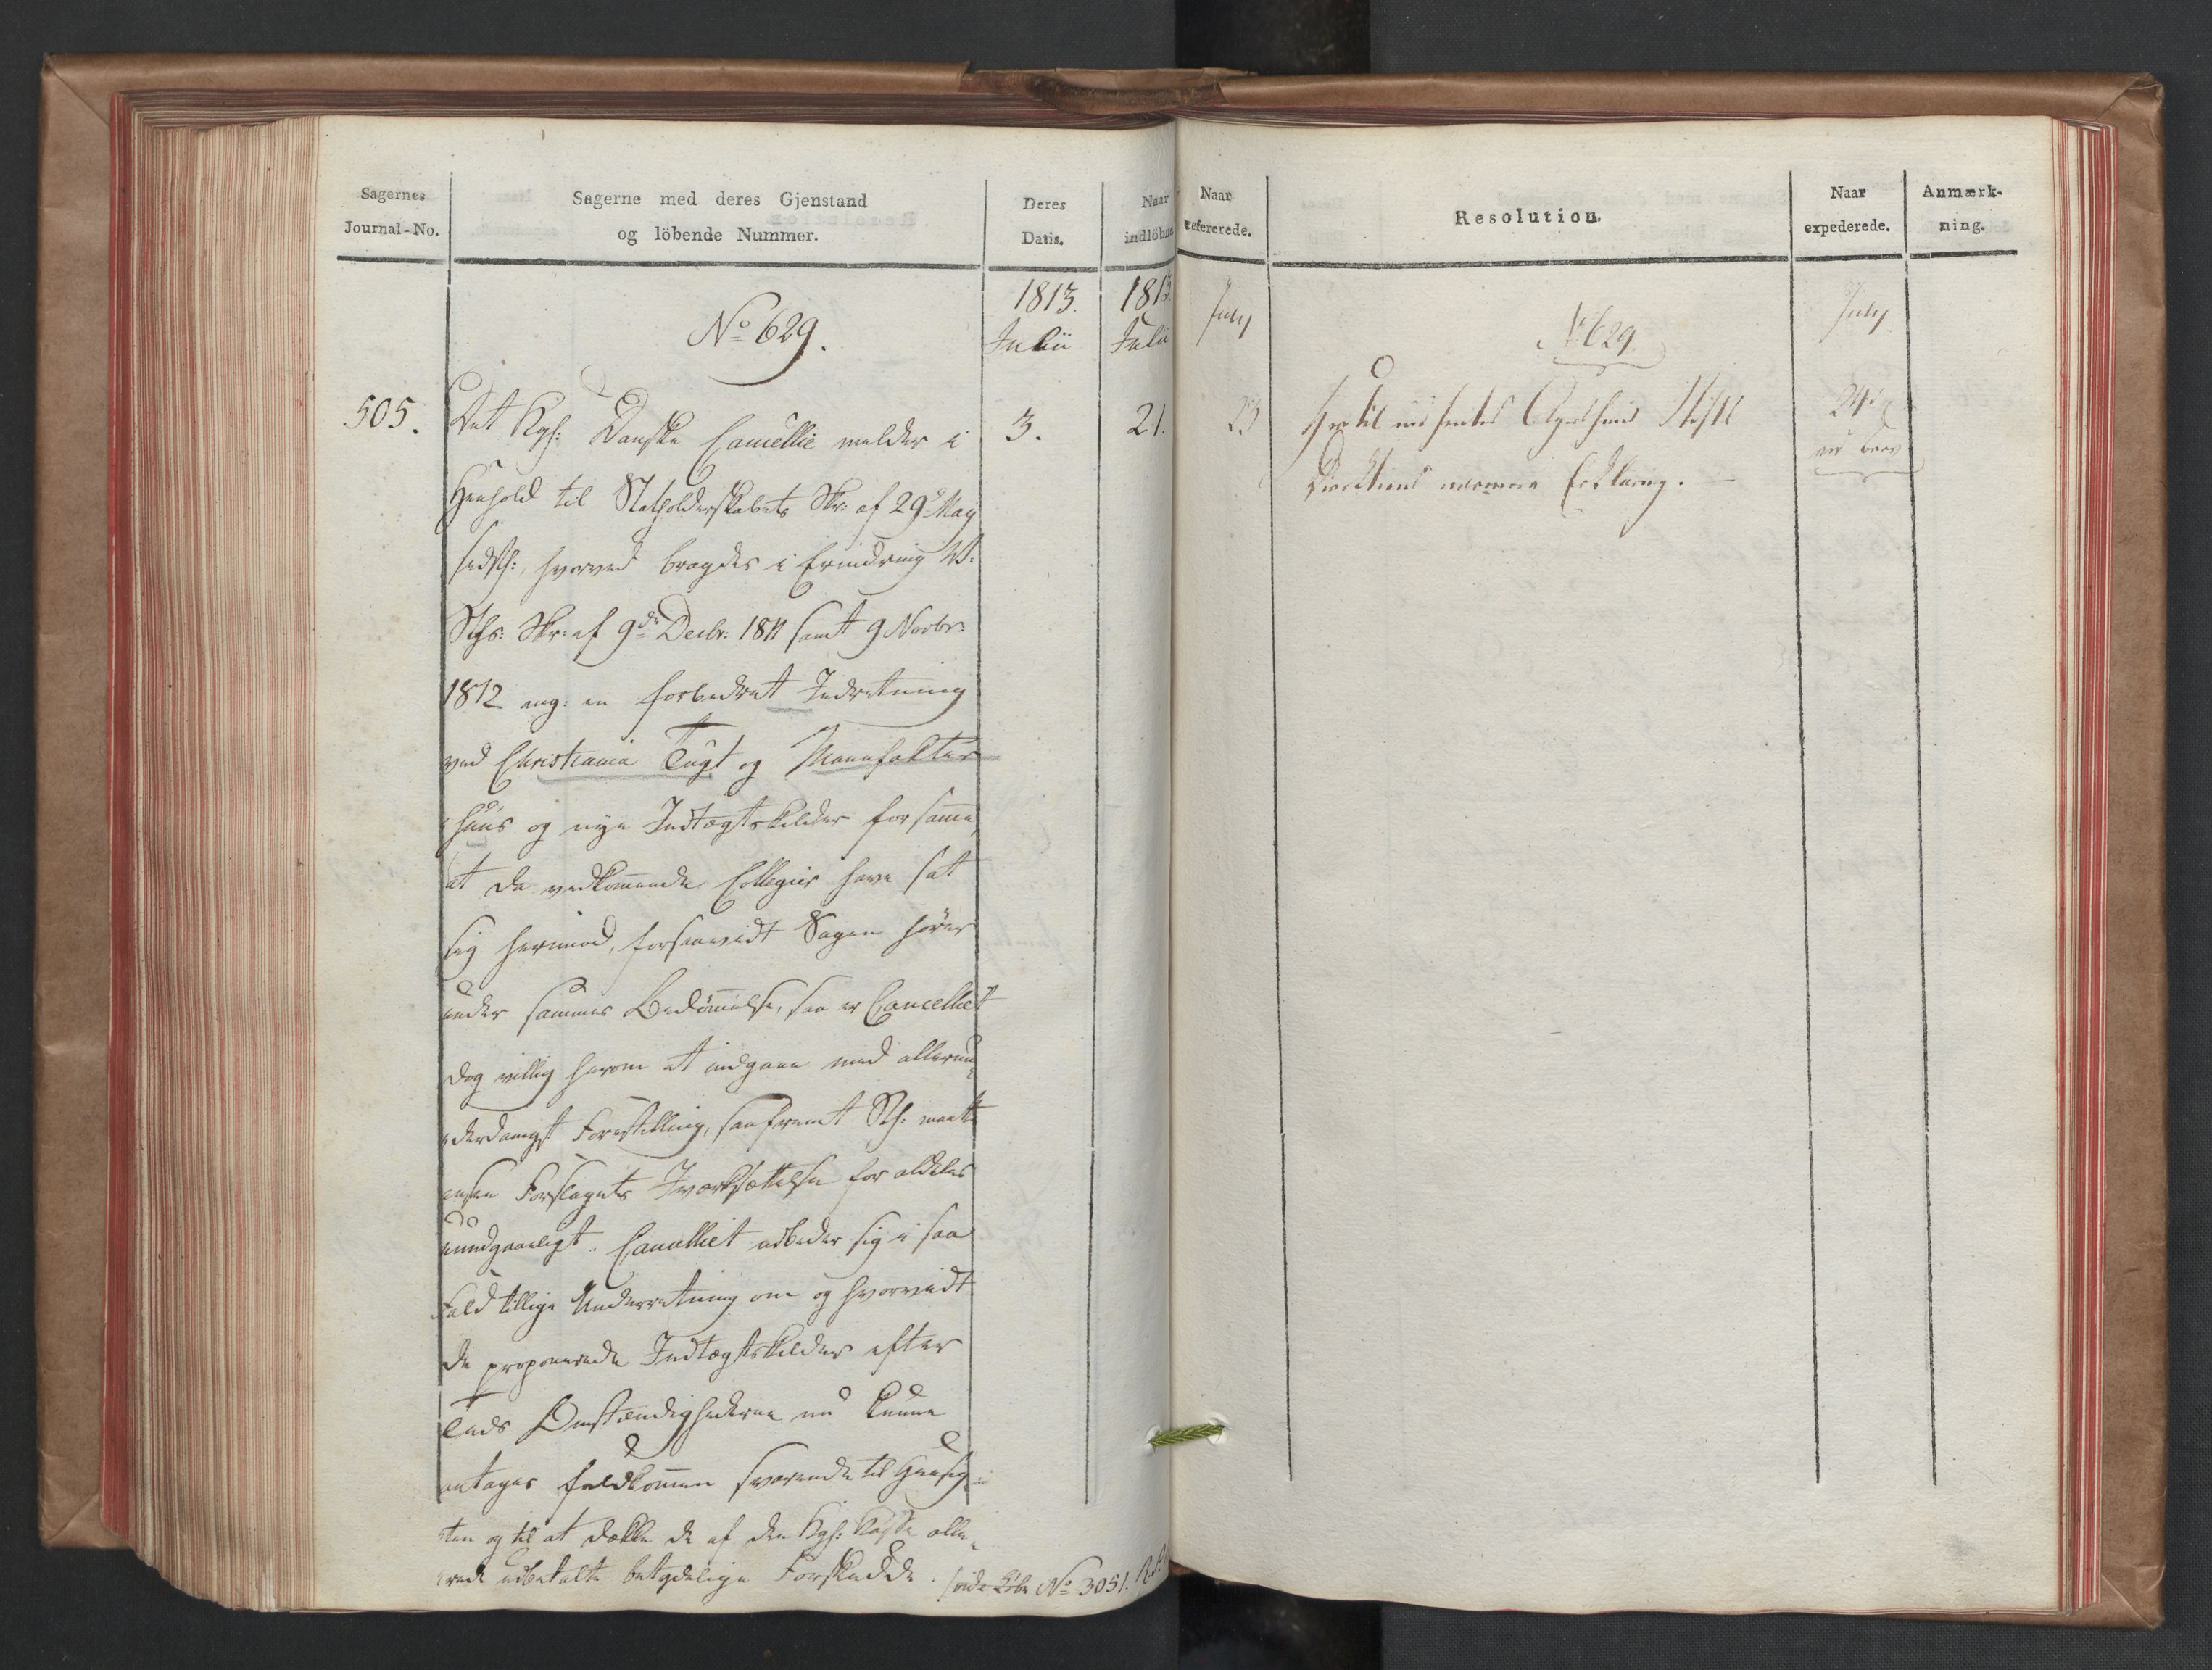 Sagernes
Journal-No.
Sagerne med deres Gjenstand
og löbende Nummer.
Deres
Datis.
Naar
indlöbne
1813. 1813
No 629.
Julii Julii
505. Det Kgl: Danske Cancellie melder i 3. 21.
Henhold til Statholderskabets Skr: af 29d May
sidstl:, hvorved bragdes i Erindring St:
Sths: Skr: af 9de Decbr: 1811 samt 9 Novbr:
1812 ang: en forbedret Indretning
ved Christiania Tugt og Manufaktur
huus og nye Indtægtskilder for samme,
at da vedkommende Collegier have sat
sig herimod, forsaavidt Sagen hører
under sammes Bedömmelse, saa er Cancelliet
dog villig herom at indgaae med allerun
derdanigst Forestilling, saafremt Sth: maatte
ansee Forslagets Iværksættelse for aldeles
uundgaaeligt. Cancelliet udbeder sig i saa
Fald tillige Underretning om og hvorvidt
de proponerede Indtægtskilder efter
Tids Omstændighederne nu kunne
antages fuldkommen svarende til Hensig-
ten og til at dække de af den Kgl: Kasse alle-
rede udbetalte betydelige Forskudde. /vide Löbe No 3051. R.P.
Naar
refererede.
Resolution.
Naar
expederede.
Anmærk-
ning.
July
No 629.
July
23 Hertil indhentes Agershuus Stifts 24.
Direktions nærmere Erklæring. ved brev